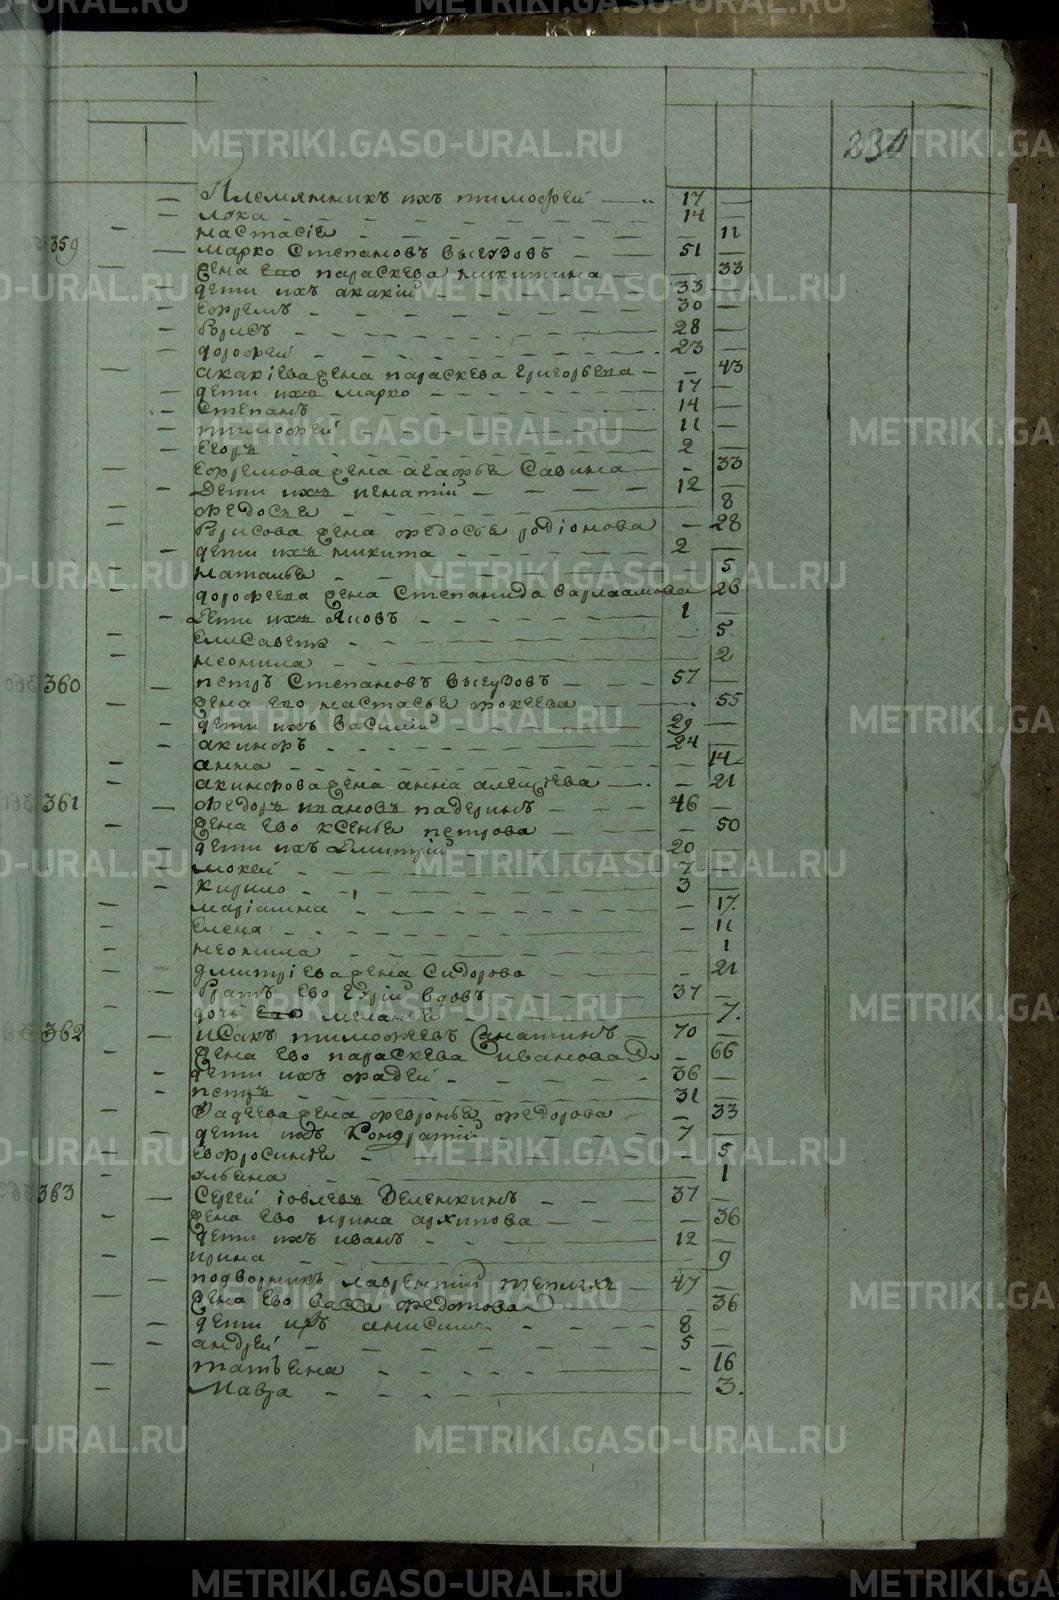 230
Племянникъ ихъ тимофей 17
лука 14
настасіе 11
359 марко Степановъ выгузовъ 51
жена ево параскева никитина 33
дети ихъ акакій 33
ефремъ 30
борисъ 28
дорофеи 23
акакіева жена параскева григорьева 43
дети ихъ марко 17
Степанъ 14
тимофей 11
егоръ 2
ефремова жена агафье Савина 33
Дети ихъ игнатій 12
федосье 8
борисова жена федосье родіонова 28
дети ихъ никита 2
наталье 5
дорофеева жена Степанида варлаамова 26
Дети ихъ Яковъ 1
елисаветъ 5
неонила 2
360 петръ Степановъ выгузовъ 57
жена ево настасье фокеева 55
дети ихъ василій 29
акинфъ 24
анна 14
акинфова жена анна алеѯіева 21
361 федоръ ивановъ падеринъ 46
жена ево ксенье петрова 50
дети ихъ Дмитрій 20
мокей 7
кирило 3
маріамна 17
елена 11
неонила 1
дмитріева жена Сидорова 21
братъ ево юрій вдовъ 37
дочь ево меланье 7
362 исакъ тимофеевъ Санатинъ 70
жена ево параскева иванова 66
дети ихъ фадеи 36
петръ 31
Фадеева жена февронье федорова 33
дети ихъ Кондратій 7
евфросинье 5
ульена 1
363 Сергей іовлевъ Зеленкинъ 37
жена ево ирина архипова 36
дети ихъ иванъ 12
ирина 9
подворникъ лаврентій 47
жена ево васса федотова 36
дети ихъ анисимъ 8
андрей 5
татьена 16
Мавра 3
METRIKI.GASO-URAL.RU